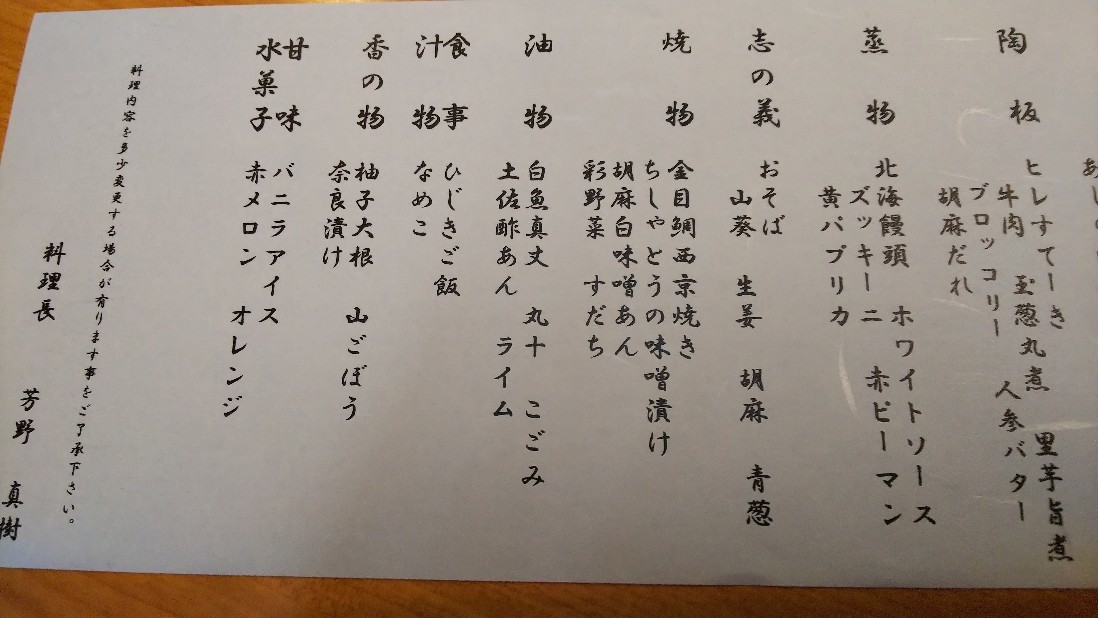 陶板
ヒレすてーき　玉葱丸煮　里芋旨煮
牛肉
ブロッコリー　人参バター
胡麻だれ
蒸物
北海饅頭　ホワイトソース
ズッキーニ　赤ピーマン
黄パプリカ
志の義
おそば
山葵　生姜　胡麻　青葱
焼物
金目鯛西京焼き
ちしゃとうの味噌漬け
胡麻白味噌あん
彩野菜　すだち
油物
白魚真丈　丸十　こごみ
土佐酢あん　ライム
食事
ひじきご飯
汁物
なめこ
香の物
柚子大根　山ごぼう
奈良漬け
甘味
バニラアイス
水菓子
赤メロン　オレンジ
料理内容を多少変更する場合が有ります事をご了承下さい。
料理長　芳野　真樹